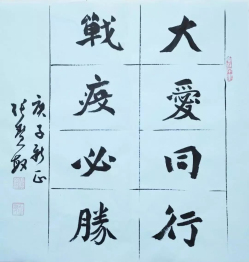 大愛同行
戰疫必勝
庚子新正